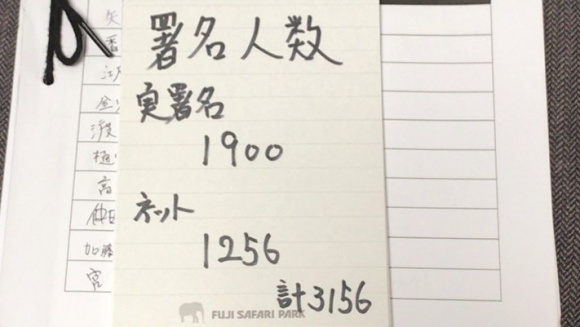 署名人数
実署名
1900
ネット
1256
計3156
FUJI SAFARI PARK
加藤
宮